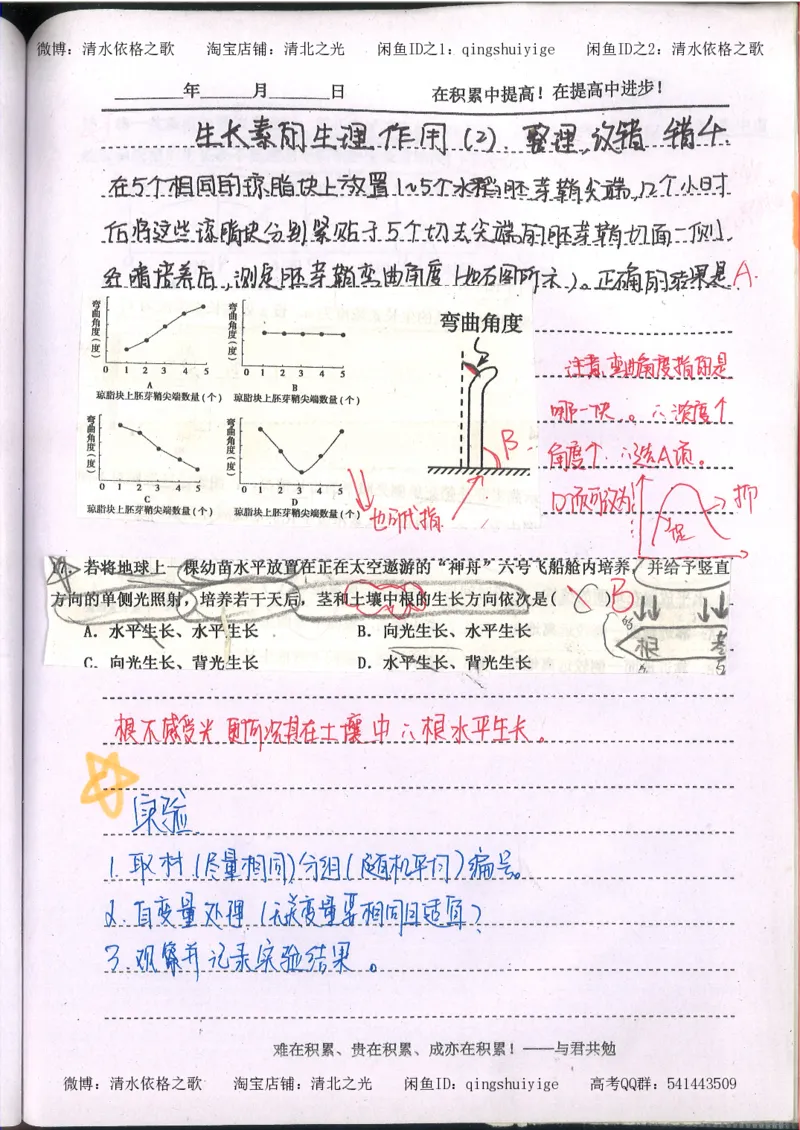 微博：清水依格之歌 淘宝店铺：清北之光 闲鱼ID之1：qingshuiyige 闲鱼ID之2：清水依格之歌
年 月 日 在积累中提高！在提高中进步！
生长素的生理作用（2）. 整理，改错
在5个相同的琼脂块上放置1~5个水稻胚芽鞘尖端,12个小时
后将这些琼脂块分别紧贴于5个切去尖端的胚芽鞘切面一侧,
经暗培养后,测定胚芽鞘弯曲角度(如右图所示)。正确的结果是A.
弯曲角度（度）
0 1 2 3 4 5
A
琼脂块上胚芽鞘尖端数量（个）
弯曲角度（度）
0 1 2 3 4 5
B
琼脂块上胚芽鞘尖端数量（个）
弯曲角度（度）
0 1 2 3 4 5
C
琼脂块上胚芽鞘尖端数量（个）
弯曲角度（度）
0 1 2 3 4 5
D
琼脂块上胚芽鞘尖端数量（个）
弯曲角度
B
也可代指
注意,弯曲角度指的是
哪一块。∴浓度个
角度个.∴选A项。
D项可改为
促
抑
17. 若将地球上一棵幼苗水平放置在正在太空遨游的“神舟”六号飞船舱内培养，并给予竖直
方向的单侧光照射，培养若干天后，茎和土壤中根的生长方向依次是( ) B
A．水平生长、水平生长 B．向光生长、水平生长
C．向光生长、背光生长 D．水平生长、背光生长
根 茎
根不感受光 更何况其在土壤中∴根水平生长。
实验
1. 取材(尽量相同)分组(随机平均)编号。
2. 自变量处理.(无关变量要相同且适宜)
3. 观察并记录实验结果。
难在积累、贵在积累、成亦在积累！——与君共勉
微博：清水依格之歌 淘宝店铺：清北之光 闲鱼ID：qingshuiyige 高考QQ群：541443509